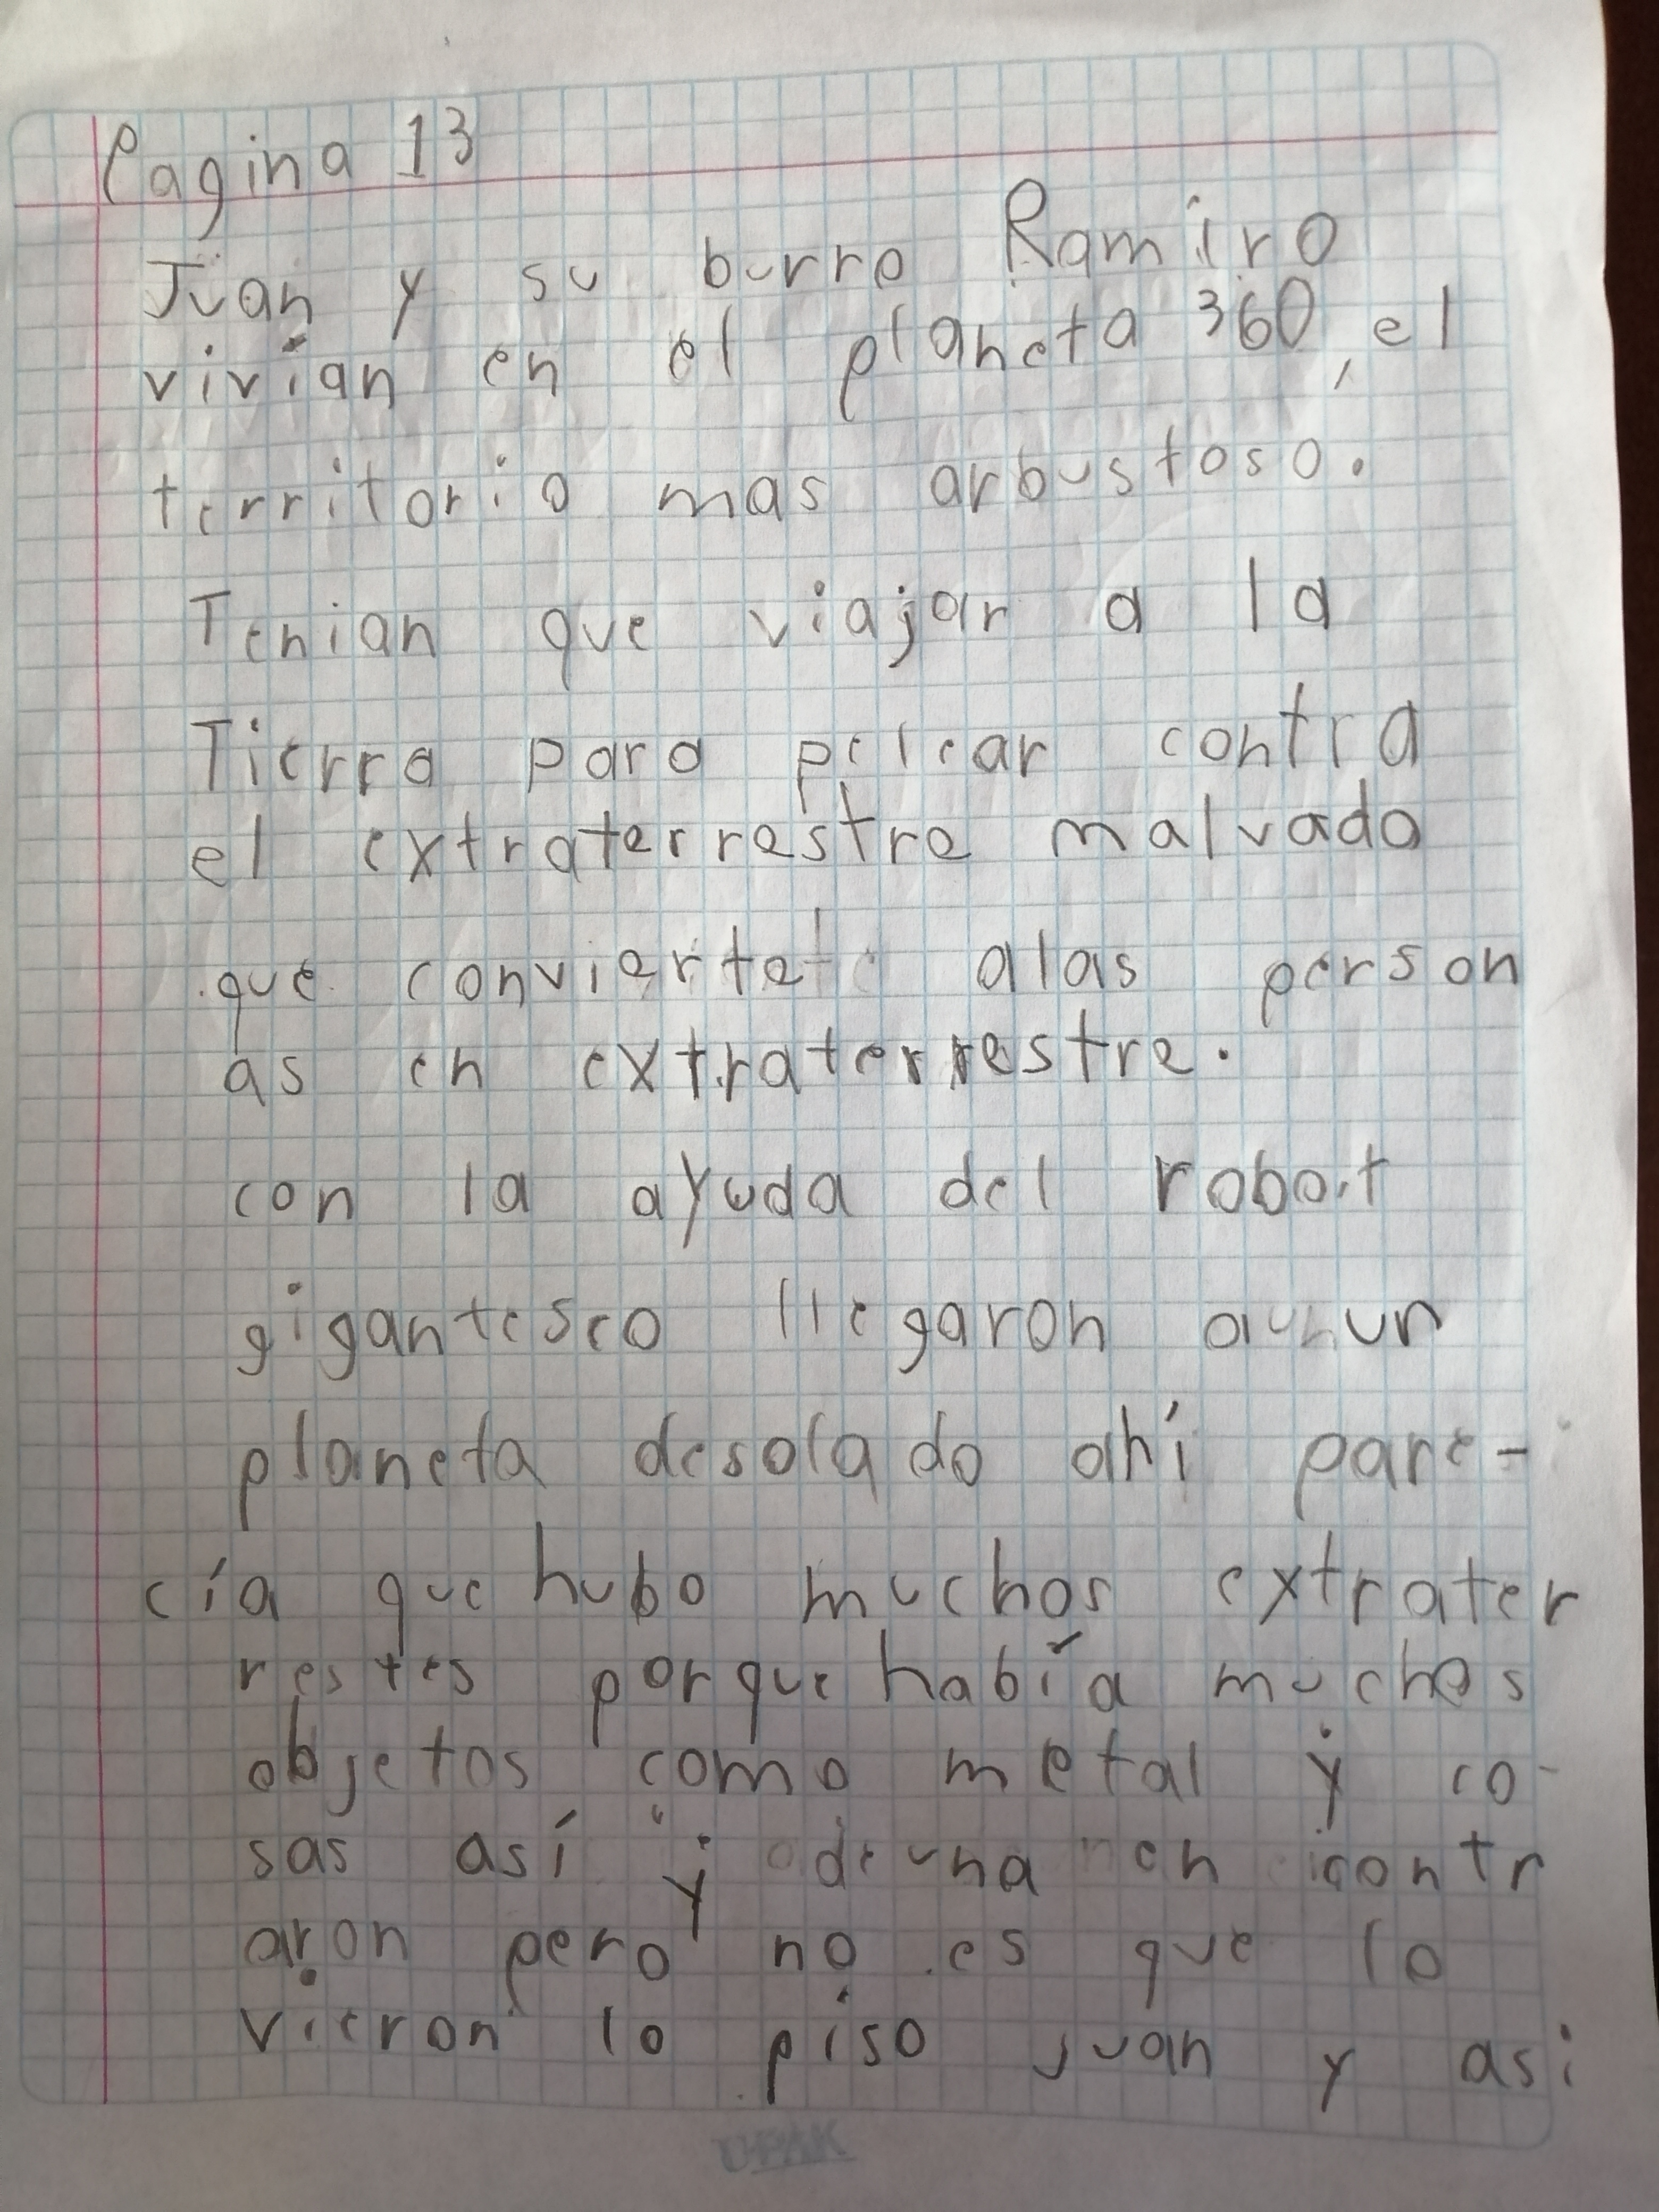 Pagina 13
Juan y su burro Ramiro
vivían en el planeta 360, el
territorio mas arbustoso.
Tenian que viajar a la
Tierra para pelear contra
el extraterrestre malvado
que convierte alas person
as en extraterrestre.
con la ayuda del robot
gigantesco llegaron a un
planeta desolado ahí pare-
cía que hubo muchos extrater
restes porque había muchos
objetos como metal y co-
sas así y de una en contr
aron pero no es que lo
vieron lo piso juan y asi
UPAK